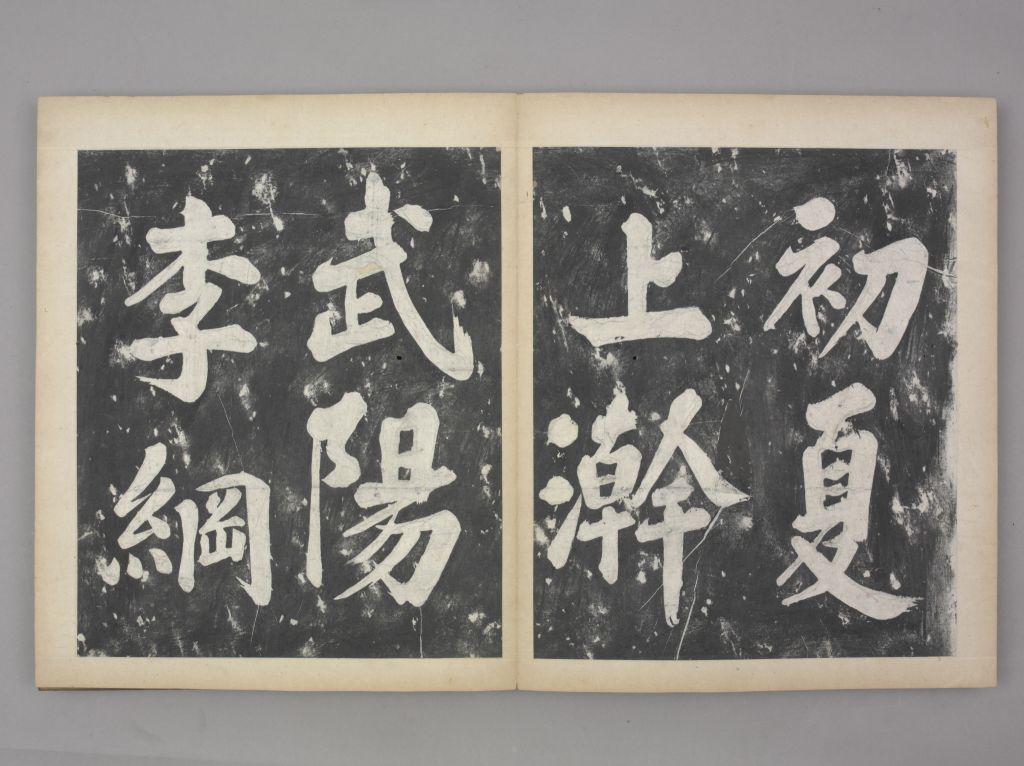 初夏
上澣
武陽
李綱